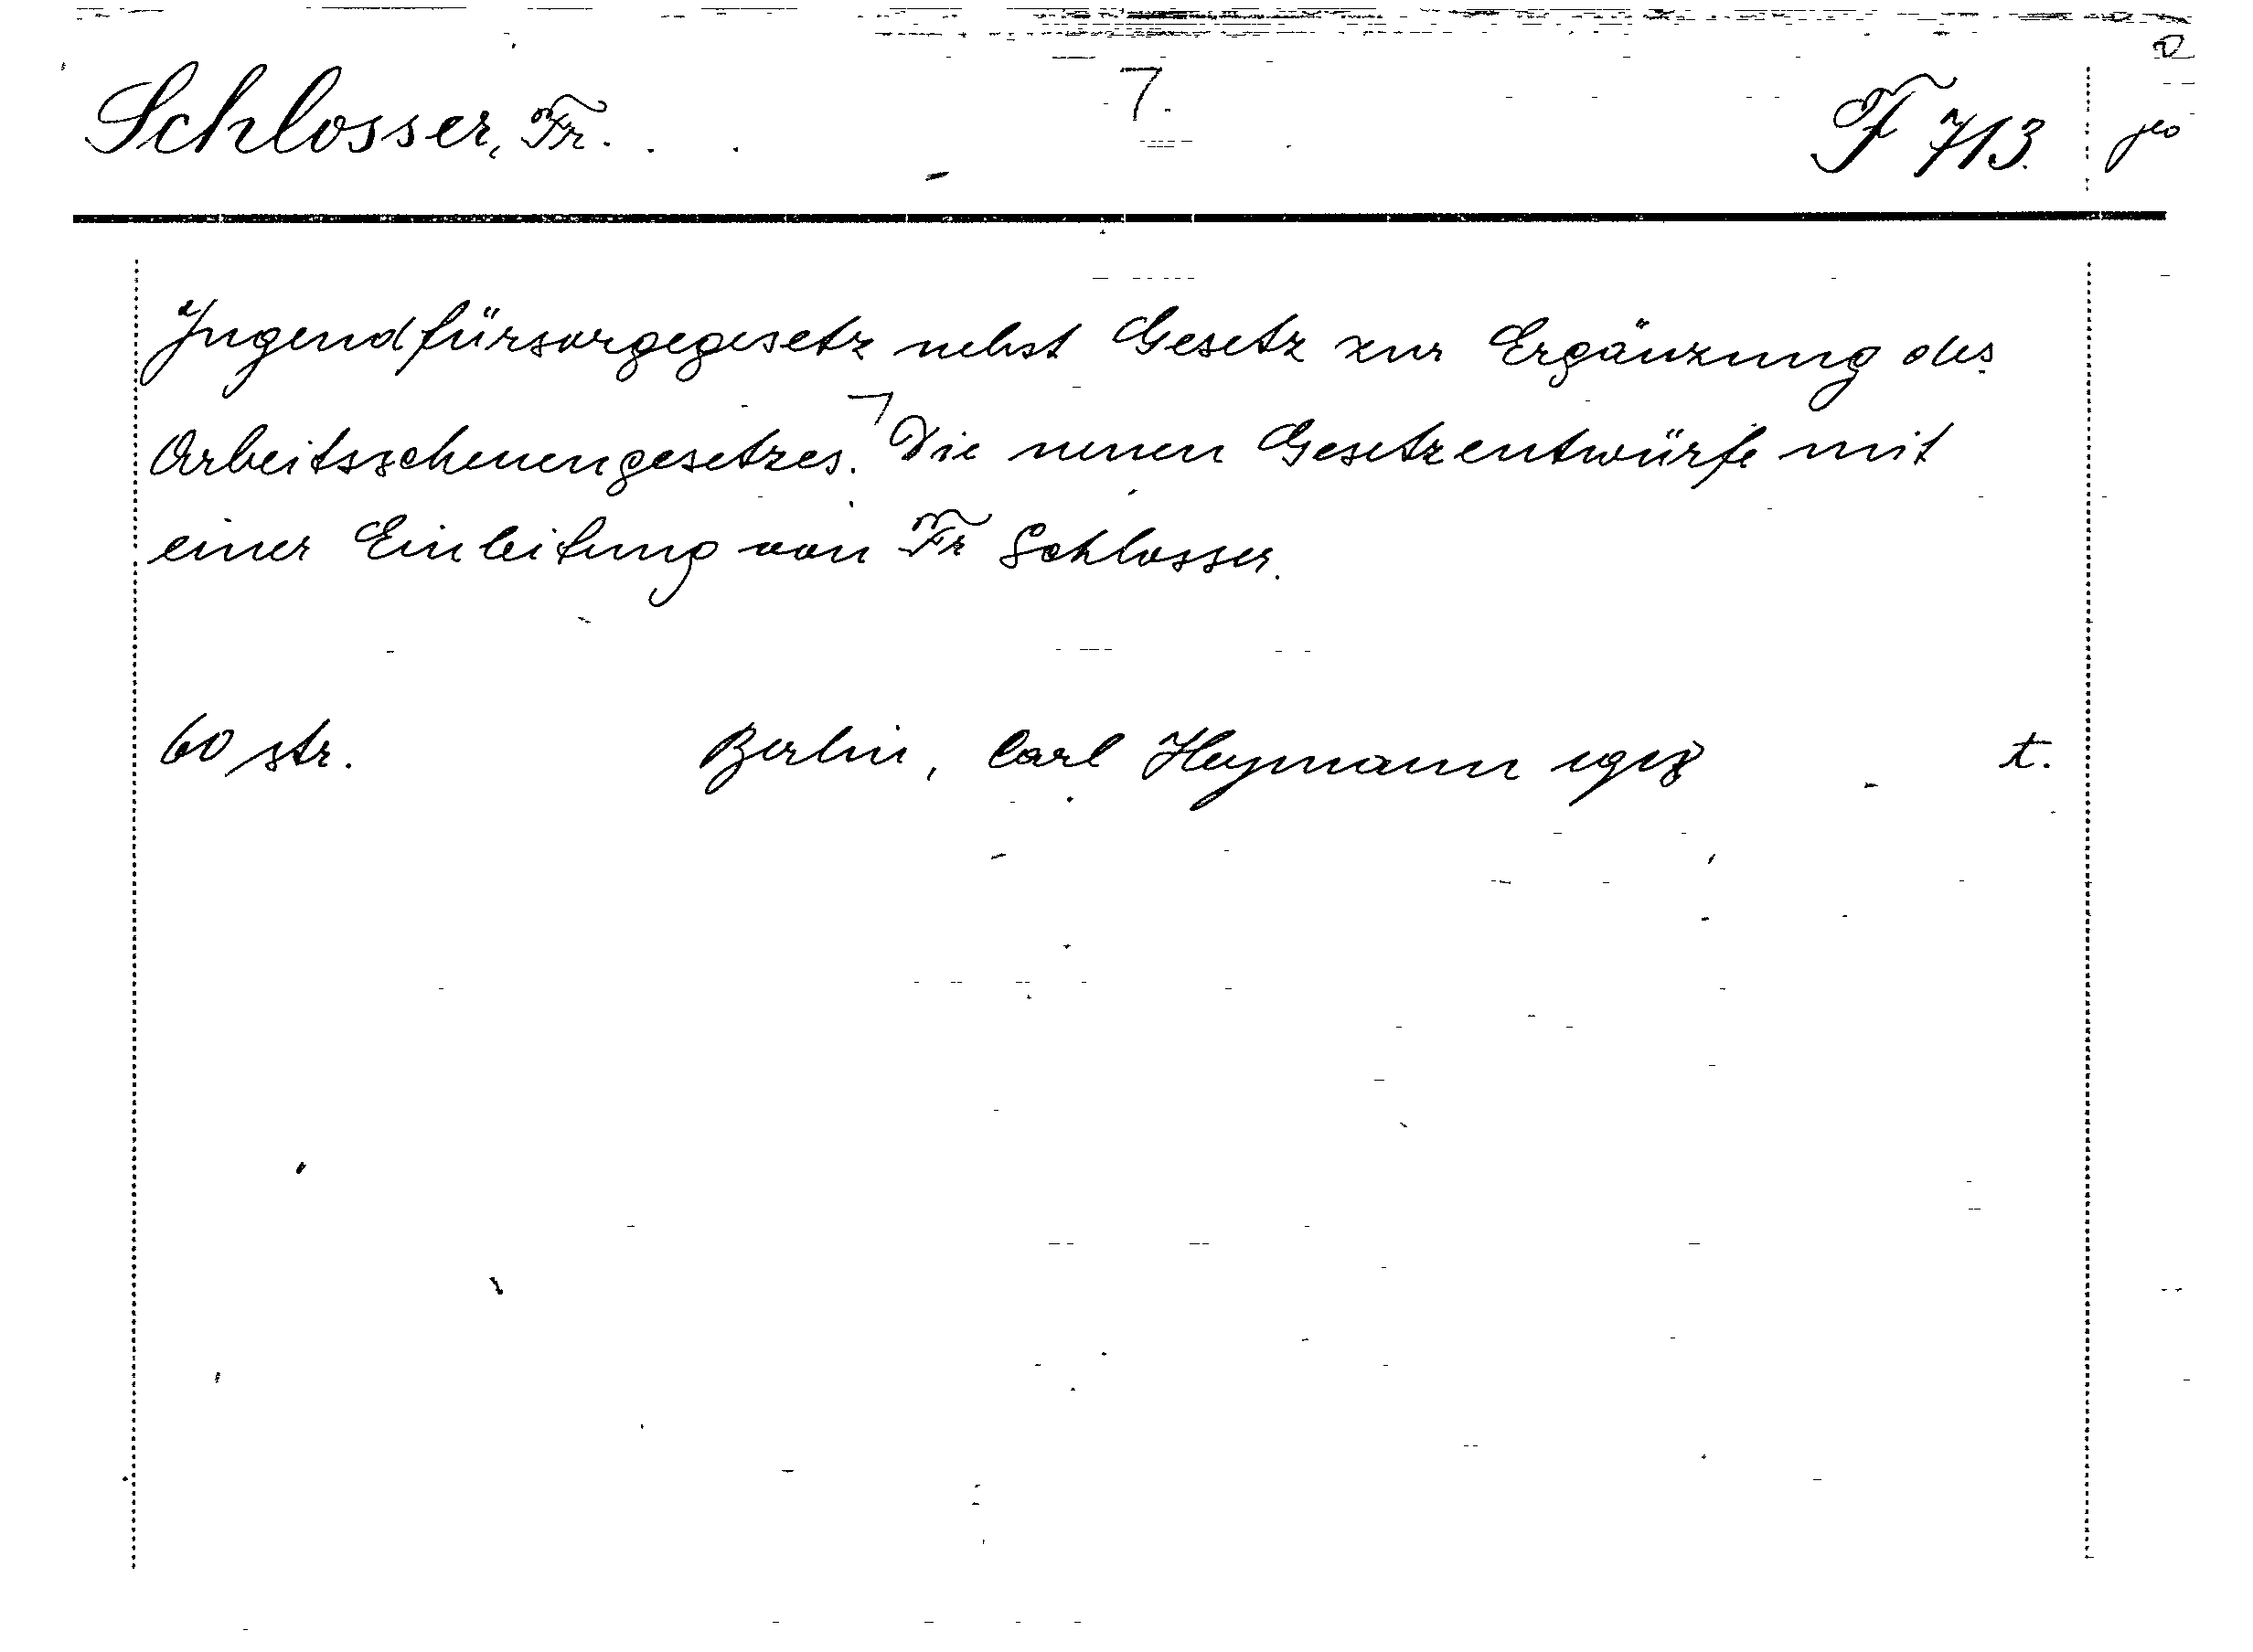 Schlosser, Fr. 7. F 713.
Jugendfürsorgegesetz nebst Gesetz zur Ergänzung des
Arbeitsscheuengesetzes. Die neuen Gesetzentwürfe mit
einer Einleitung von Fr Schlosser.
60 str. Berlin, Carl Heymann 1918 t.